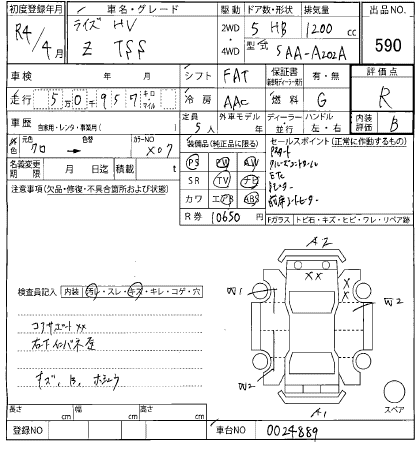 初度登録年月 車名・グレード 駆動 ドア数・形状 排気量 出品NO.
R4/4月 ライズ HV 2WD・4WD 5 HB 1200 cc 590
Z 型式 5AA-A202A
車検 年 月 シフト FAT 保証書 有・無 評価点
走行 5万0千957 キロ マイル 冷房 AAC 燃料 G R
車歴 自家用・レンタ・事業用( ) 定員 5人 外車モデル 年 ディーラー 並行 ハンドル 左・右 内装評価 B
色 元色 クロ → 色替 カラーNO X07
装備品(純正品に限る) セールスポイント(正常に作動するもの)
名義変更期限 月 日迄 積載 t
PS PW AW
SR TV ナビ
カワ エアB ABS
ETC
注意事項(欠品・修復・不具合箇所および状態)
R券 10650円
Fガラス トビ石・キズ・ヒビ・ワレ・リペア跡
A2
XX
W1
X
X
W2
検査員記入 内装 汚レ・スレ・キズ・キレ・コゲ・穴
コアサポートXX
W2
キズ、
スペア
A1
長さ cm 幅 cm 高さ cm
登録NO 車台NO 0024889